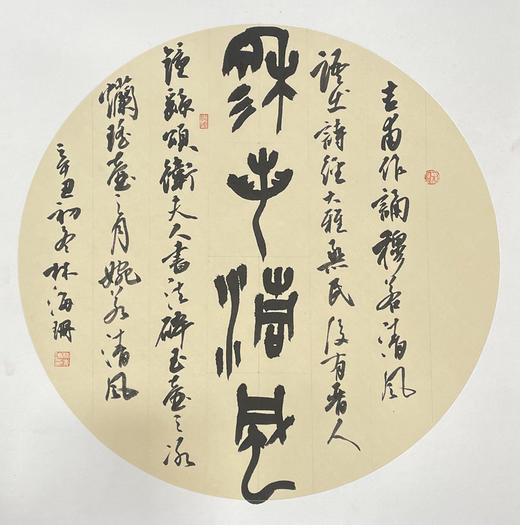 吉甫作誦穆若清風
語出詩經大雅烝民後有晉人
穆若清風
鍾繇頌衛夫人書法碎玉壺之冰
爛瑤臺之月婉若清風
辛丑初冬林海珊